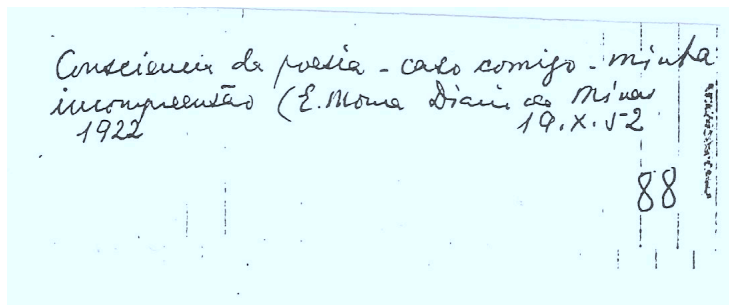 Consciencia da poesia - caso comigo - minha
incompreensão (E. Moura Diario de Minas
1922 19.X.52
88